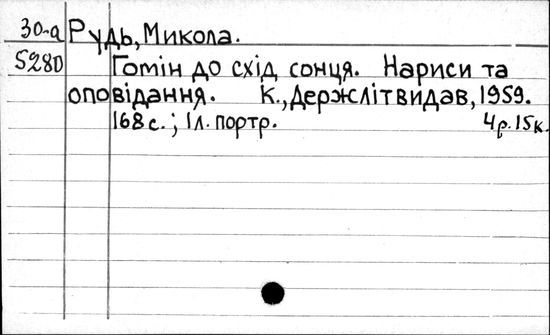 30-а Рудь, Микола.
5280 Гомін до схід сонця. Нариси та
оповідання. К., Держлітвидав, 1959.
168 с.; Іл. портр. 4р.15к.